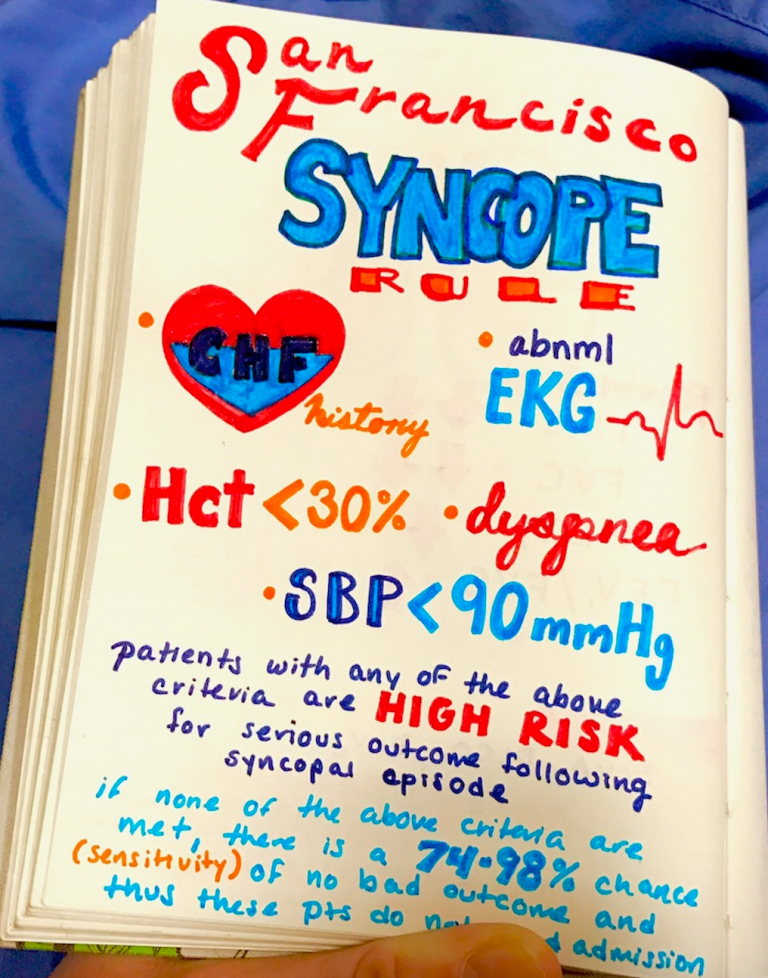 San
Francisco
SYNCOPE
RULE
• CHF
history
• abnml
EKG
• Hct <30%
• dyspnea
• SBP<90mmHg
patients with any of the above
criteria are HIGH RISK
for serious outcome following
syncopal episode
if none of the above criteria are
met, there is a 74-98% chance
(sensitivity) of no bad outcome and
thus these pts do admission